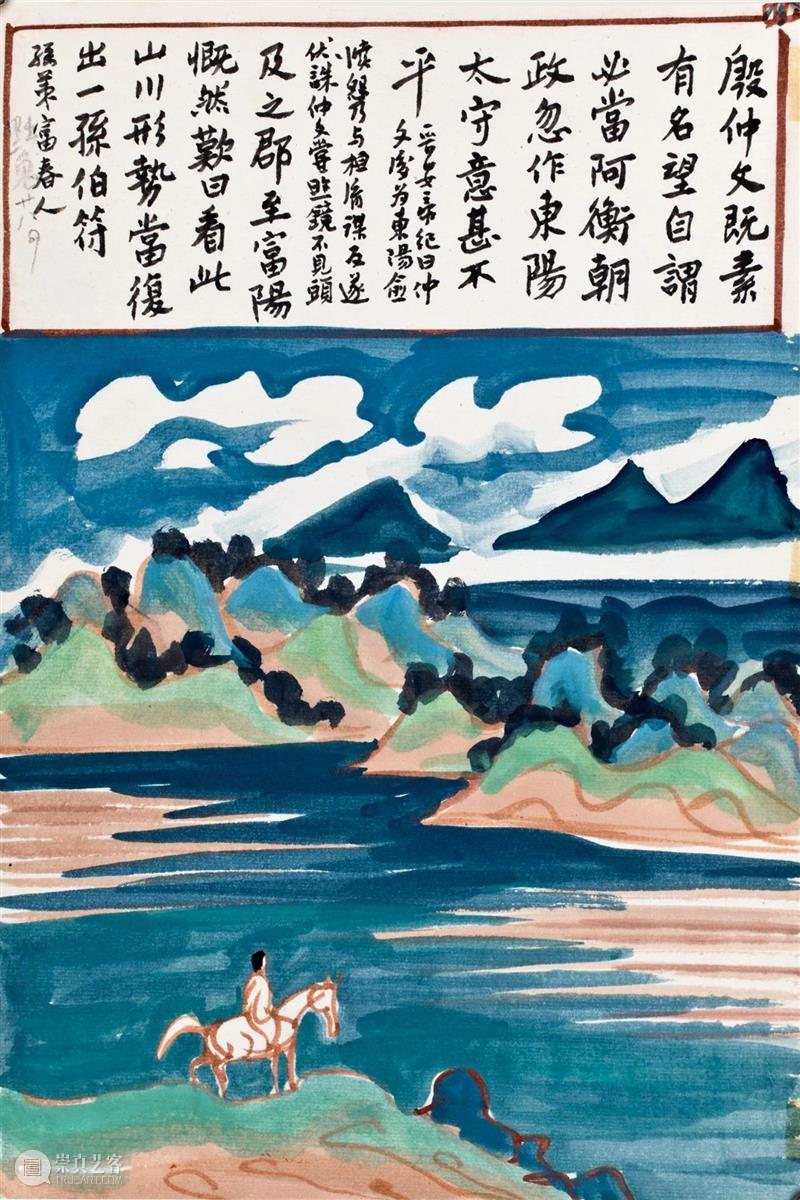 殷仲文既素
有名望自謂
必當阿衡朝
政忽作東陽
太守意甚不
平
晉安帝紀曰仲
文後為東陽愈
憤怨与桓胤謀反遂
伏誅仲文嘗照鏡不見頭
及之郡至富陽
慨然歎曰看此
山川形勢當復
出一孫伯符
孫策富春人
黜免廿八
崇真艺客